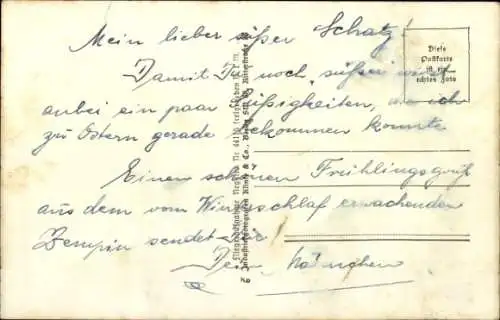 Mein lieber süßer Schatz!
Damit Du noch "süßer wirst
anbei ein paar Süßigkeiten, wie ich
zu Ostern gerade bekommen konnte
Einen schönen Frühlingsgruß
aus dem vom Winterschlaf erwachenden
Zempin sendet Dir
Dein
Diese
Postkarte
ist ein
echtes Foto